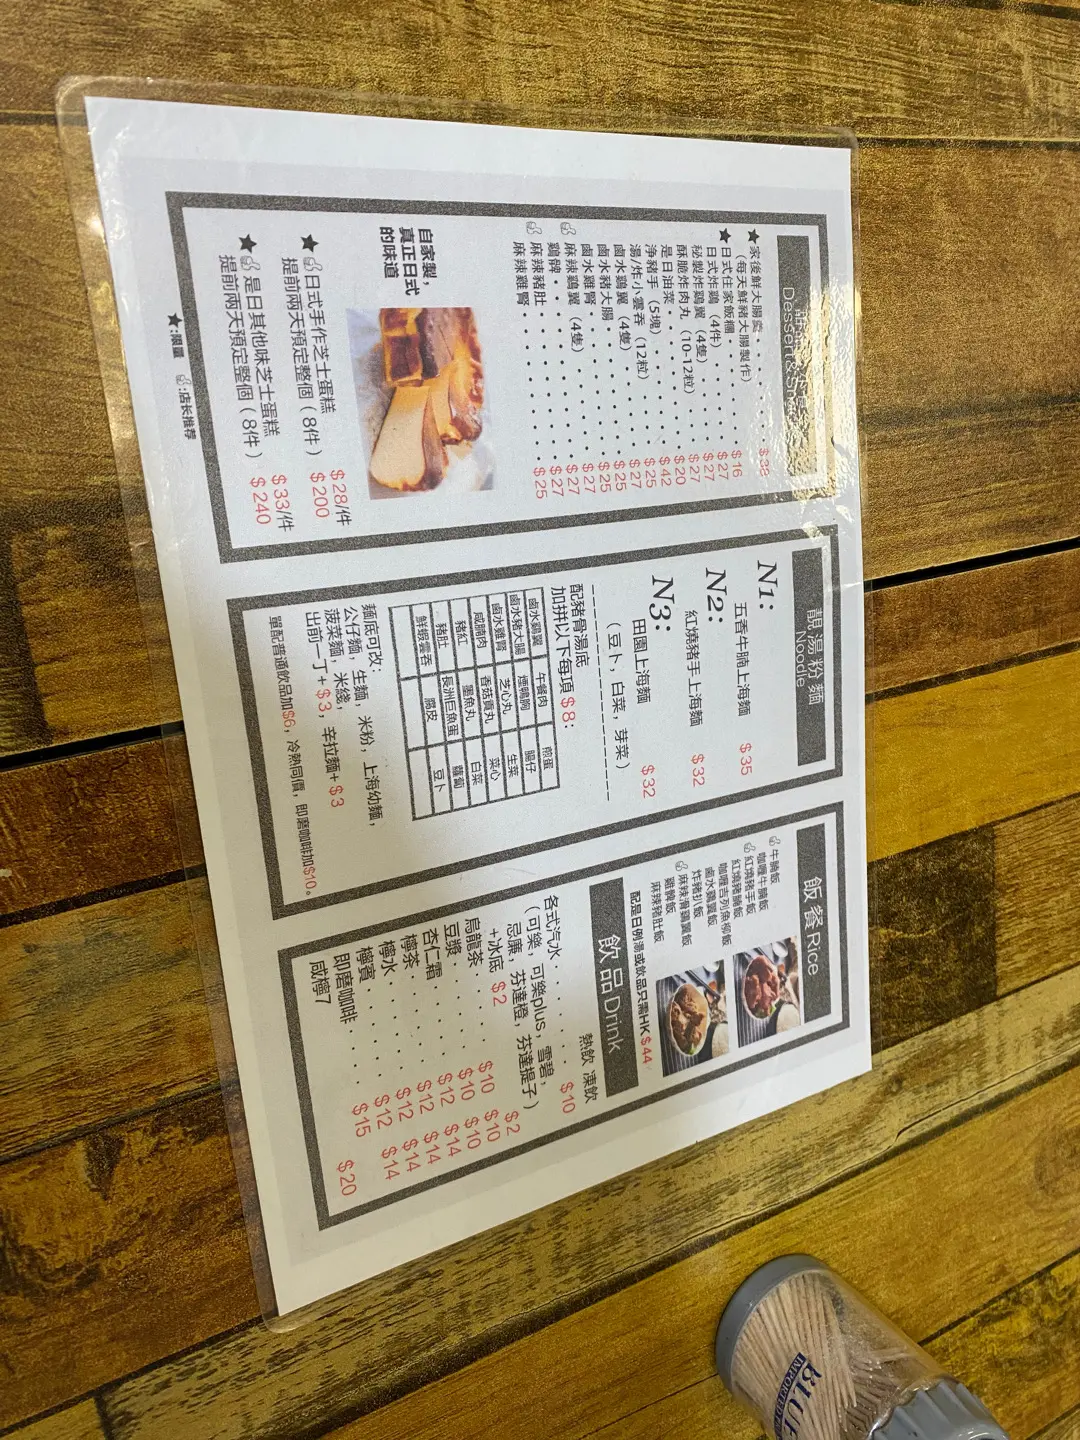 Dessert&Sna
★ 家後鮮大腸
$38
(每天鮮豬大腸製作)
★ 日式住家飯糰 $16
日式炸鷄 (4件) $27
秘製炸鷄翼 (4隻) $27
酥脆炸肉丸 (10-12粒) $27
是日油菜 $20
淨豬手 (5塊) $42
湯/炸小雲吞 (12粒) $25
鹵水鷄翼 (4隻) $27
鹵水豬大腸 $25
鹵水雞腎 $25
麻辣鷄翼 (4隻) $27
鷄髀 $27
麻辣豬肚 $27
麻辣雞腎 $25
自家製,
真正日式
的味道
日式手作芝士蛋糕 $28/件
提前兩天預定整個 (8件) $200
★ 是日其他味芝士蛋糕 $33/件
提前兩天預定整個 (8件) $240
★:限量 :店长推荐
靚湯粉麵
Noodle
N1:
五香牛腩上海麵 $35
N2:
紅燒豬手上海麵 $32
N3:
田園上海麵 $32
(豆卜,白菜,芽菜)
配豬骨湯底
加拼以下每項 $8:
鹵水鷄翼 午餐肉 煎蛋
鹵水豬大腸 煙鴨胸 腸仔
鹵水雞腎 芝心丸 生菜
咸腩肉 香菇貢丸 菜心
豬紅 墨魚丸 白菜
豬肚 長洲巨魚蛋 蘿蔔
鮮蝦雲吞 腐皮 豆卜
麵底可改:
公仔麵,生麵,米粉,上海幼麵,
菠菜麵,米綫,
出前一丁+$3,辛拉麵+$3
單配普通飲品加$6,冷熱同價,即磨咖啡加$10。
飯餐Rice
牛腩飯
咖喱牛腩飯
紅燒豬手飯
紅燒豬腩飯
咖喱吉列魚柳飯
鹵水鷄翼飯
炸豬扒飯
麻辣滑鷄翼飯
雞髀飯
麻辣豬肚飯
配是日例湯或飲品只需HK$44
飲品Drink
熱飲 凍飲
各式汽水 $10
(可樂,可樂plus,雪碧,
忌廉,芬達橙,芬達提子)
+冰底 $2 $2
烏龍茶 $10 $10
豆漿 $10 $10
杏仁霜 $12 $14
檸茶 $12 $14
檸水 $12 $14
檸賓 $12 $14
即磨咖啡 $15
咸檸7 $20
BLUE